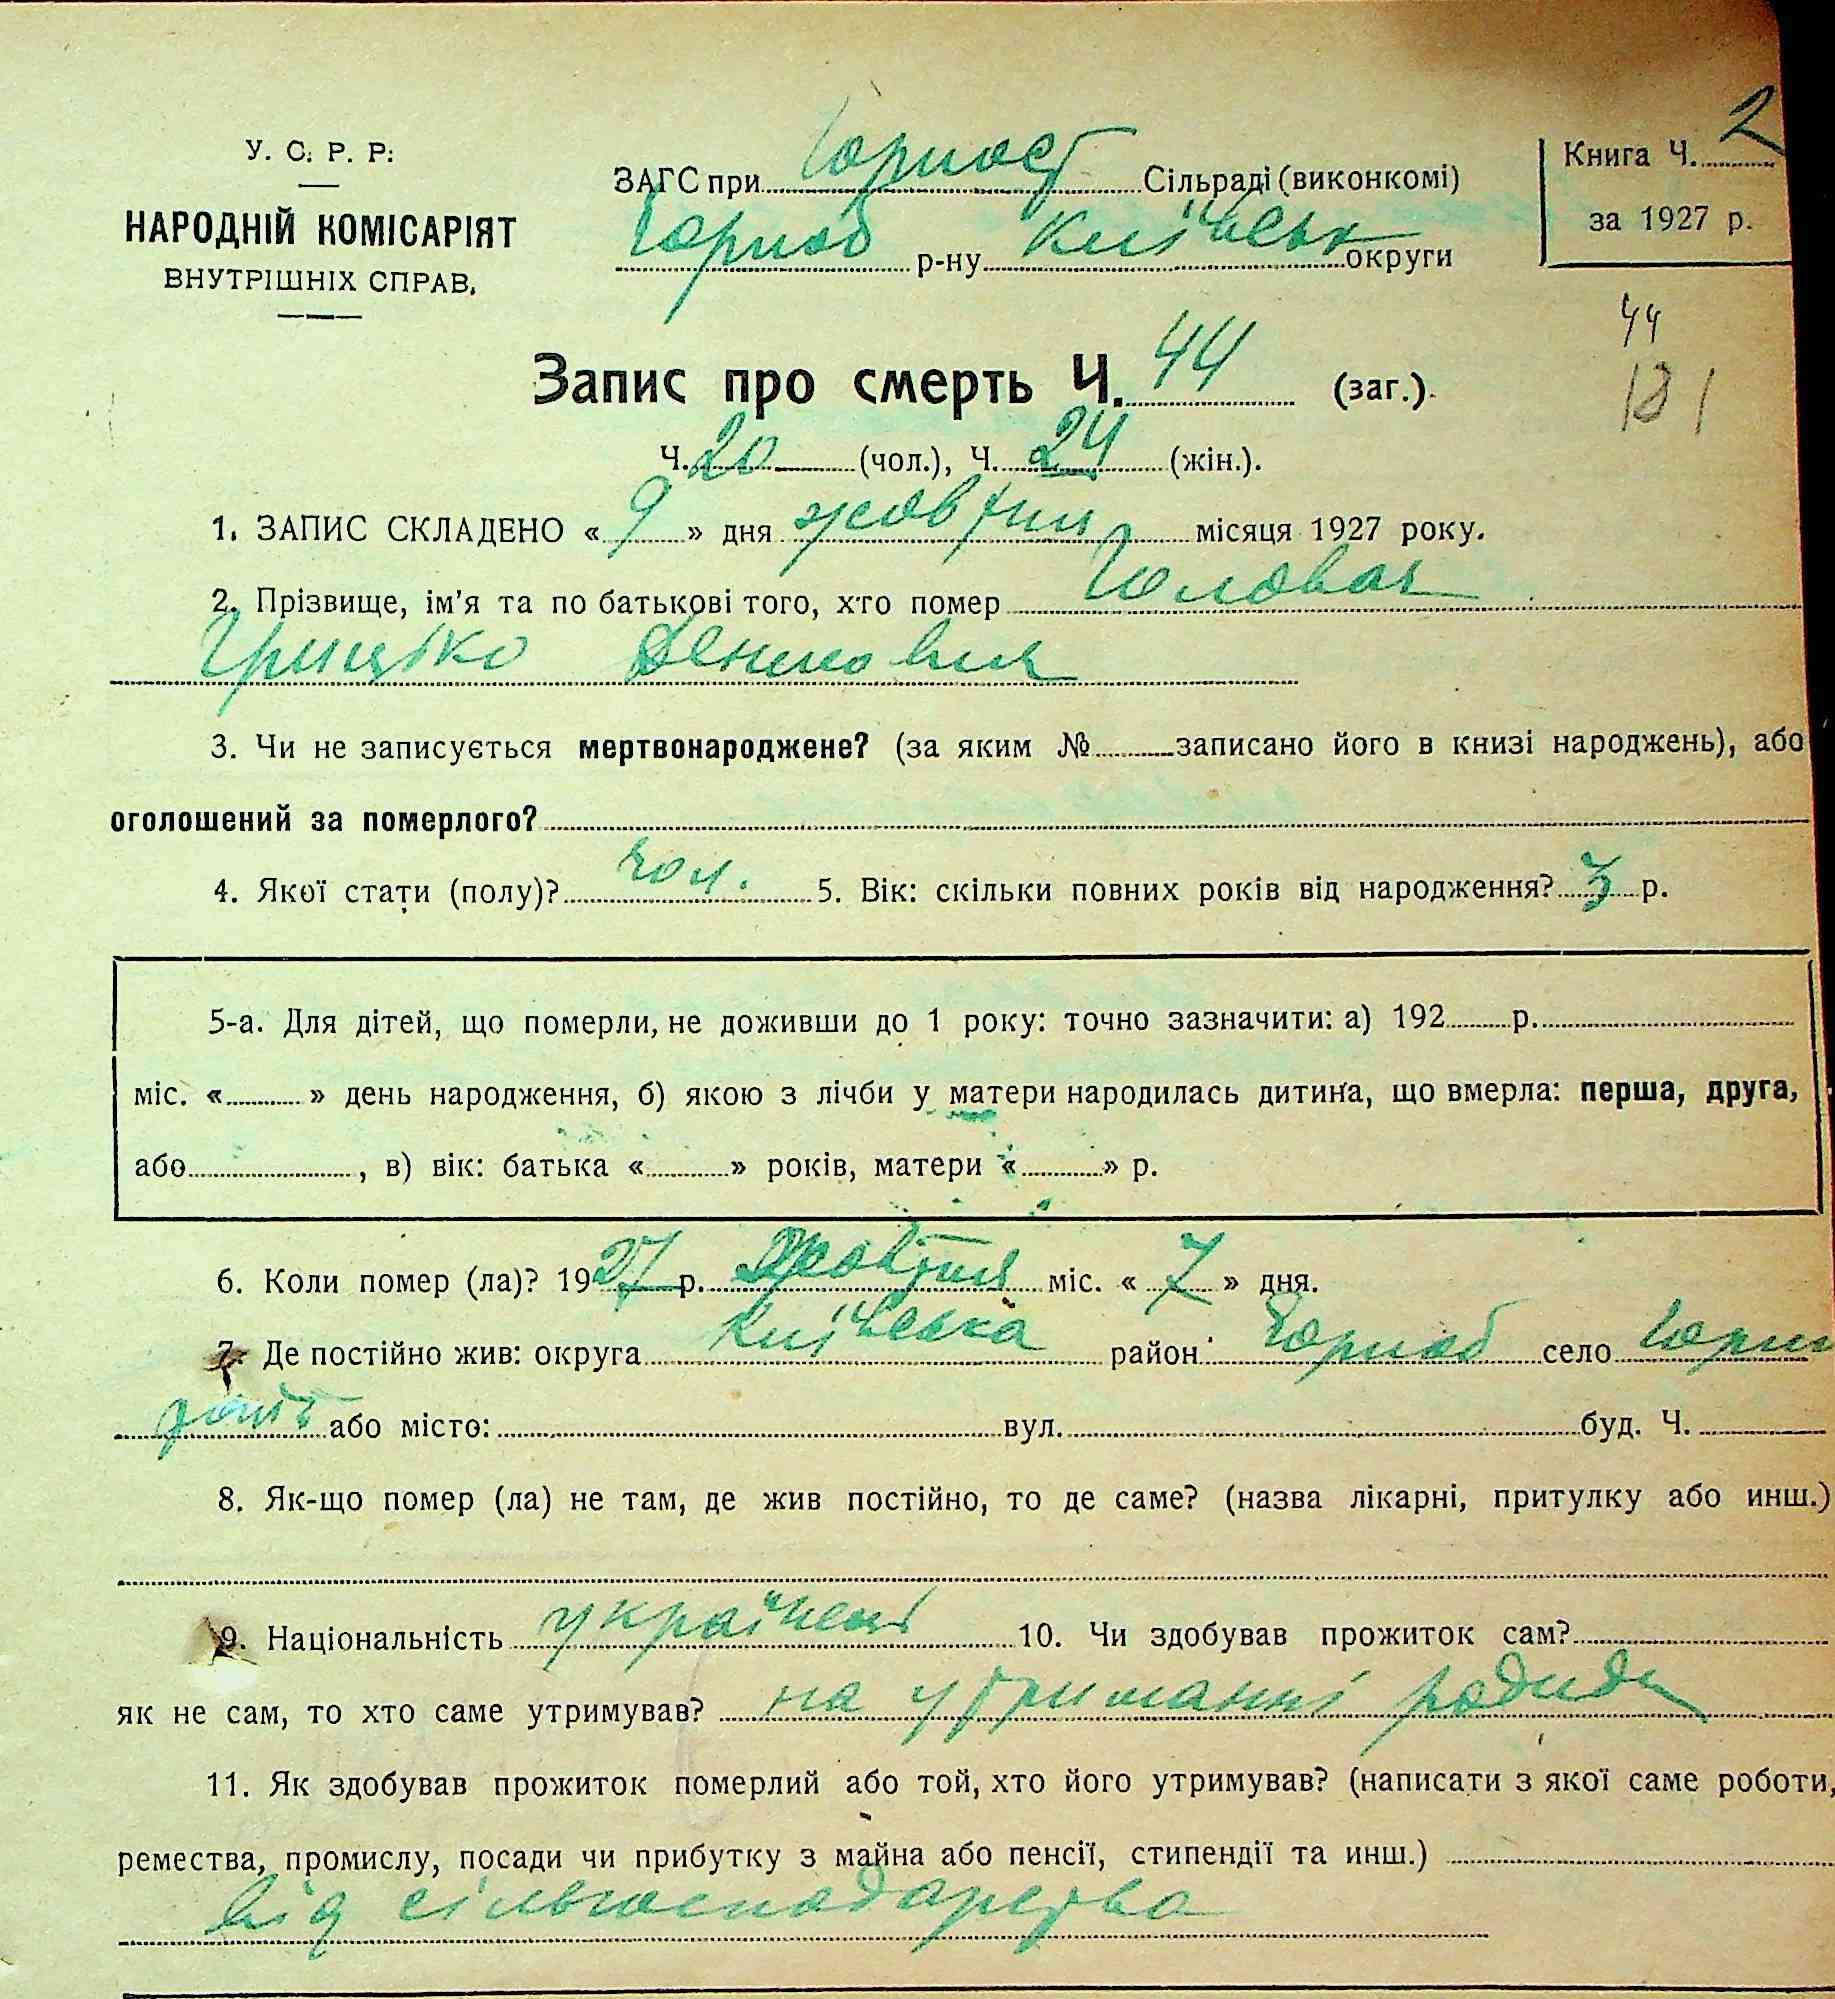 У. С. Р. Р.
НАРОДНІЙ КОМІСАРІЯТ
ВНУТРІШНІХ СПРАВ.
ЗАГС при Горност Сільраді (виконкомі)
Чорноб р-ну Київськ округи
Книга Ч. 2
за 1927 р.
44
181
Запис про смерть Ч. 44 (заг.).
Ч. 20 (чол.), Ч. 24 (жін.).
1. ЗАПИС СКЛАДЕНО « 9 » дня жовтня місяця 1927 року.
2. Прізвище, ім'я та по батькові того, хто помер Головач
Грицько Денисович
3. Чи не записується мертвонароджене? (за яким № записано його в книзі народжень), або
оголошений за померлого?
4. Якої стати (полу)? чол. 5. Вік: скільки повних років від народження? 3 р.
5-а. Для дітей, що померли, не доживши до 1 року: точно зазначити: а) 192 р.
міс. « » день народження, б) якою з лічби у матери народилась дитина, що вмерла: перша, друга,
або , в) вік: батька « » років, матери « » р.
6. Коли помер (ла)? 1927 р. Жовтня міс. « 7 » дня.
7. Де постійно жив: округа Київська район Чорноб село Горн
або місто: вул. буд. Ч.
8. Як-що помер (ла) не там, де жив постійно, то де саме? (назва лікарні, притулку або инш.)
9. Національність українець 10. Чи здобував прожиток сам?
як не сам, то хто саме утримував? на утриманні родини
11. Як здобував прожиток померлий або той, хто його утримував? (написати з якої саме роботи,
ремества, промислу, посади чи прибутку з майна або пенсії, стипендії та инш.)
від сільгосподарства